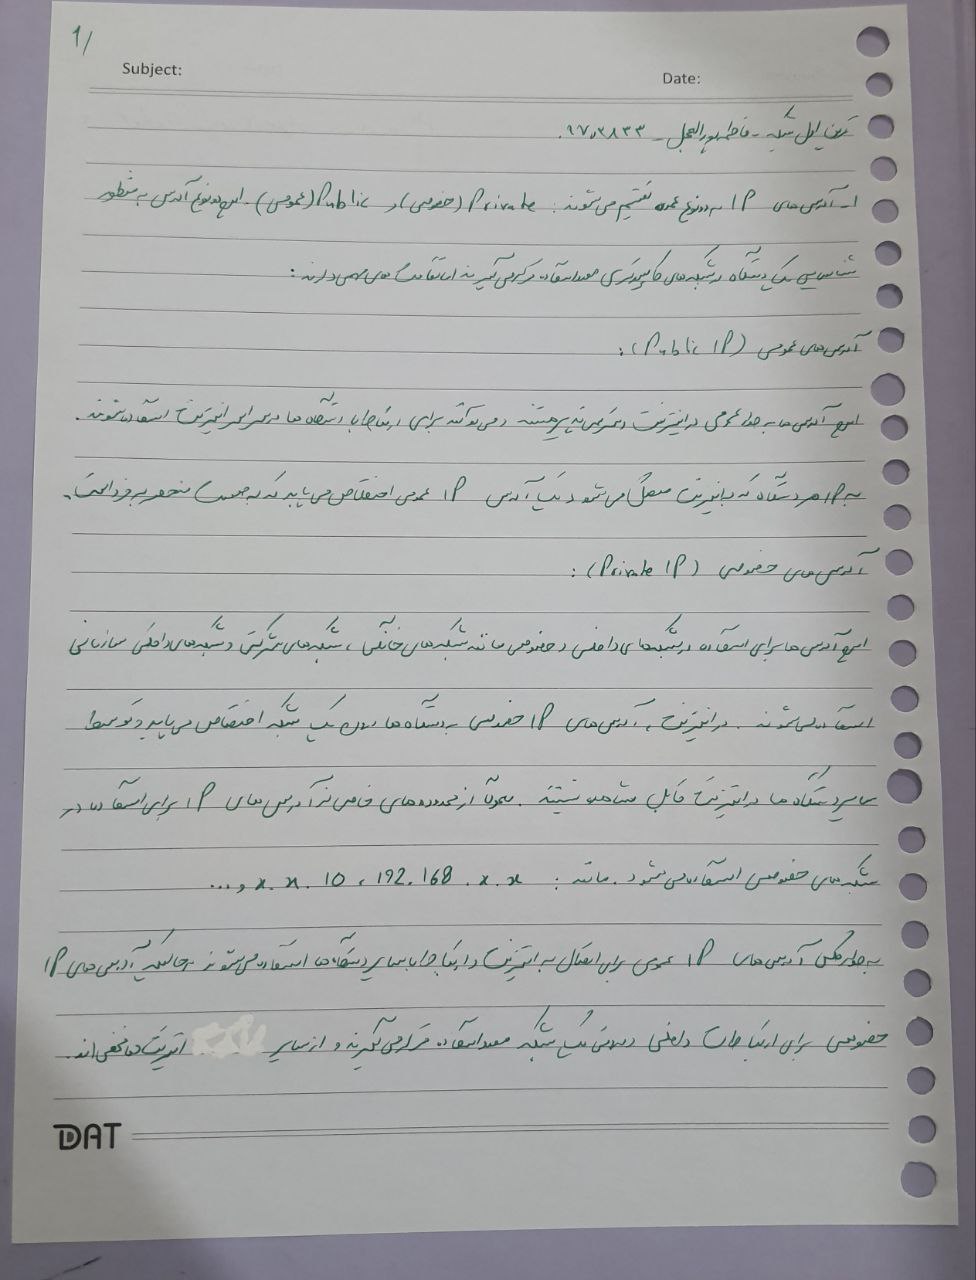 1/
Subject:
Date:
تمرین اول شبکه - فاطمه - ۹۷۰۳۸۳۳.
۱- آدرس‌های IP به دو نوع عمده تقسیم می‌شوند: Private (خصوصی) و Public (عمومی). این دو نوع آدرس به منظور
شناسایی یک دستگاه در شبکه‌های کامپیوتری مورد استفاده قرار می‌گیرند اما تفاوت‌های مهمی دارند:
آدرس‌های عمومی (Public IP):
این آدرس‌ها به طور عمومی در اینترنت دسترس‌پذیر هستند و می‌توانند برای ارتباط با دستگاه‌ها در سراسر اینترنت استفاده شوند.
به هر دستگاه که به اینترنت متصل می‌شود یک آدرس IP عمومی اختصاص می‌یابد که به صورت منحصر به فرد است.
آدرس‌های خصوصی (Private IP):
این آدرس‌ها برای استفاده در شبکه‌های داخلی و خصوصی مانند شبکه‌های خانگی، شبکه‌های شرکتی و شبکه‌های داخلی سازمانی
استفاده می‌شوند. در اینترنت، آدرس‌های IP خصوصی به دستگاه‌ها درون یک شبکه اختصاص می‌یابد و توسط
سایر دستگاه‌ها در اینترنت قابل مشاهده نیستند. معمولاً از محدوده‌های خاصی از آدرس‌های IP برای استفاده در
شبکه‌های خصوصی استفاده می‌شود. مانند: 192.168.x.x ، 10.x.x و ...
به طور کلی آدرس‌های IP عمومی برای اتصال به اینترنت و ارتباط با سایر دستگاه‌ها استفاده می‌شوند در حالیکه آدرس‌های IP
خصوصی برای ارتباطات داخلی درون یک شبکه مورد استفاده قرار می‌گیرند و از سایر اینترنت مخفی‌اند.
DAT